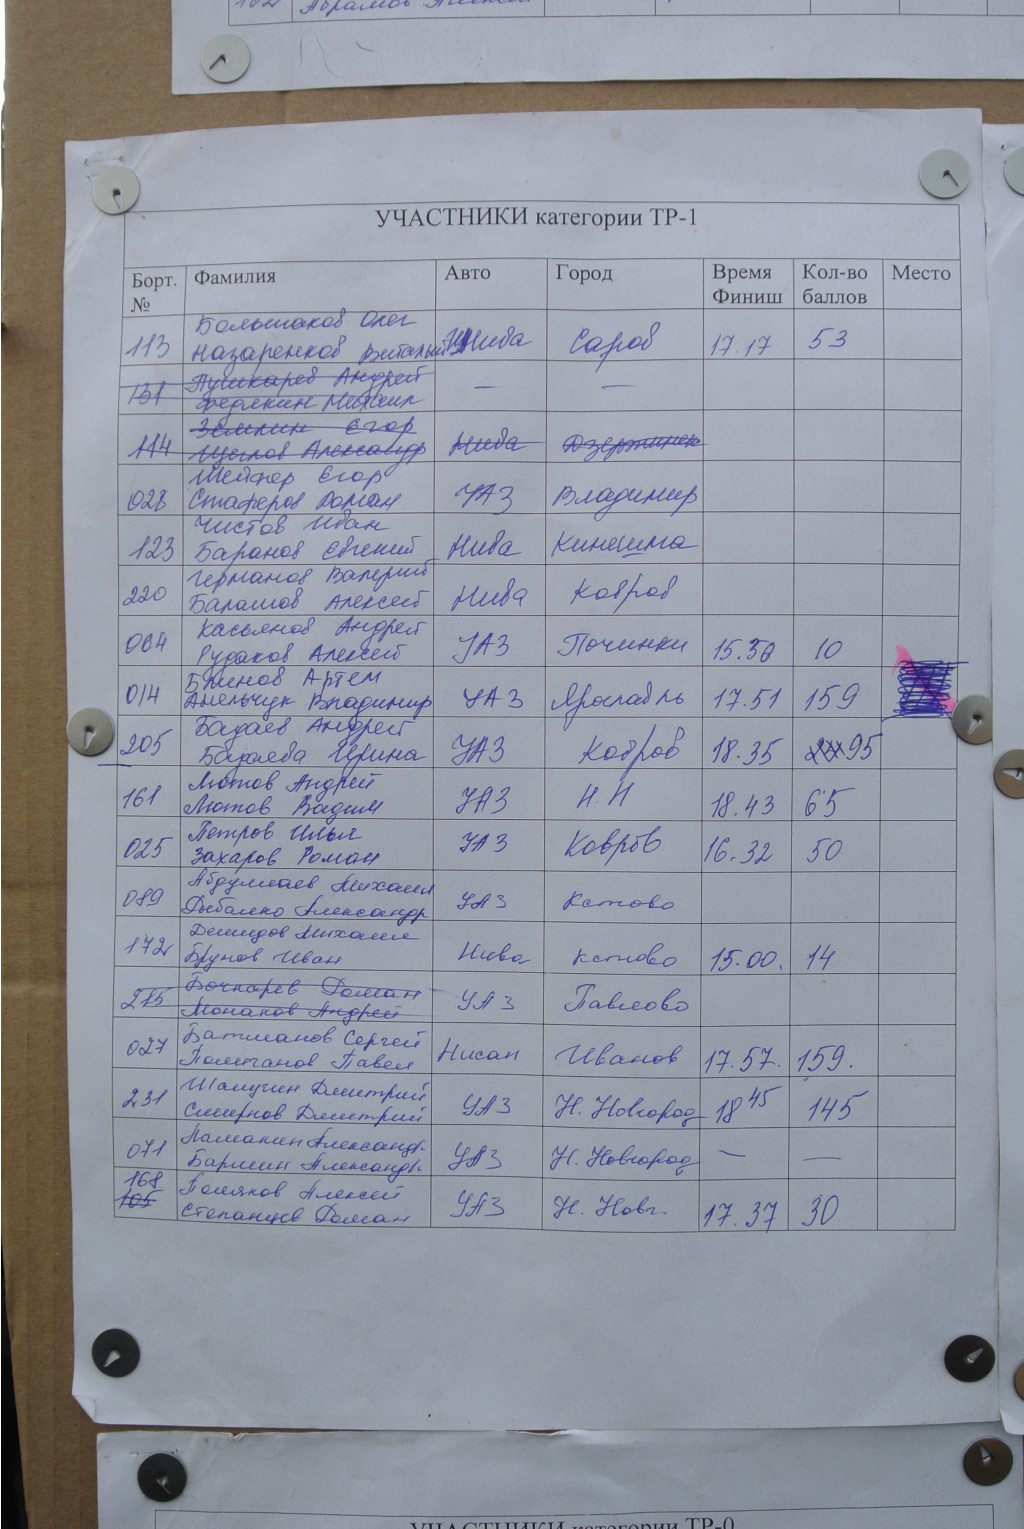 УЧАСТНИКИ категории ТР-1
Борт. № Фамилия Авто Город Время Финиш Кол-во баллов Место
113 Большаков Олег
Назаренков Виталий Нива Саров 17.17 53
131 Пушкарев Андрей — —
Федякин Михаил
114 Землин Егор
Щеглов Александр Нива Дзержинск
028 Шейпер Егор
Стаферов Роман УАЗ Владимир
123 Чистов Иван
Баранов Евгений Нива Кинешма
220 Германов Валерий
Балашов Алексей Нива Ковров
004 Касьянов Андрей
Рудаков Алексей УАЗ Починки 15.30 10
014 Блинов Артем
Анельчук Владимир УАЗ Ярославль 17.51 159
205 Бадаев Андрей
Бадаева Ирина УАЗ Ковров 18.35 95
161 Лютов Андрей
Лютов Вадим УАЗ Н.Н 18.43 65
025 Петров Илья
Захаров Роман УАЗ Ковров 16.32 50
089 Абдуллаев Михаил
Рыбалко Александр УАЗ Кстово
172 Демидов Михаил
Брунов Иван Нива Кстово 15.00. 14
275 Бочкарев Роман
Монахов Андрей УАЗ Павлово
027 Батманов Сергей
Полетанов Павел Нисан Иванов 17.57. 159.
231 Шамугин Дмитрий
Смирнов Дмитрий УАЗ Н. Новгород 18 45 145
071 Ламакин Александр
Бармин Александр УАЗ Н. Новгород — —
168
105 Поляков Алексей
Степанцев Роман УАЗ Н. Новг. 17.37 30
УЧАСТНИКИ категории ТР-0